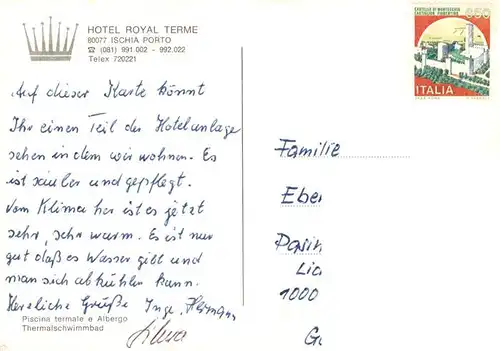 HOTEL ROYAL TERME
80077 ISCHIA PORTO
☎ (081) 991.002 - 992.022
Telex 720221
CASTELLO DI MONTECCHIO
CASTIGLION FIORENTINO
650
ITALIA
Auf dieser Karte könnt
Ihr einen Teil der Hotelanlage
sehen in dem wir wohnen. Es
ist sauber und gepflegt.
Vom Klima her ist es jetzt
sehr, sehr warm. Es ist nur
gut daß es Wasser gibt und
man sich abkühlen kann.
Herzliche Grüße Inge, Hermann
Familie
Eber
1000
Piscina termale e Albergo
Thermalschwimmbad